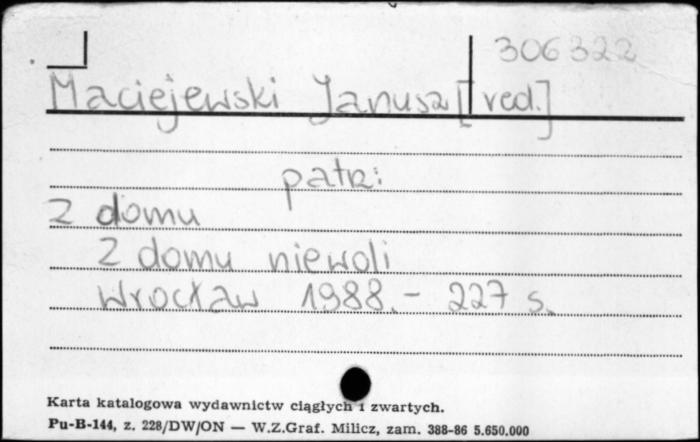 306322
Maciejewski Janusz [red.]
patrz:
Z domu
Z domu niewoli
Wrocław 1988. - 227 s.
Karta katalogowa wydawnictw ciągłych i zwartych.
Pu-B-144, z. 228/DW/ON — W.Z.Graf. Milicz, zam. 388-86 5.650.000